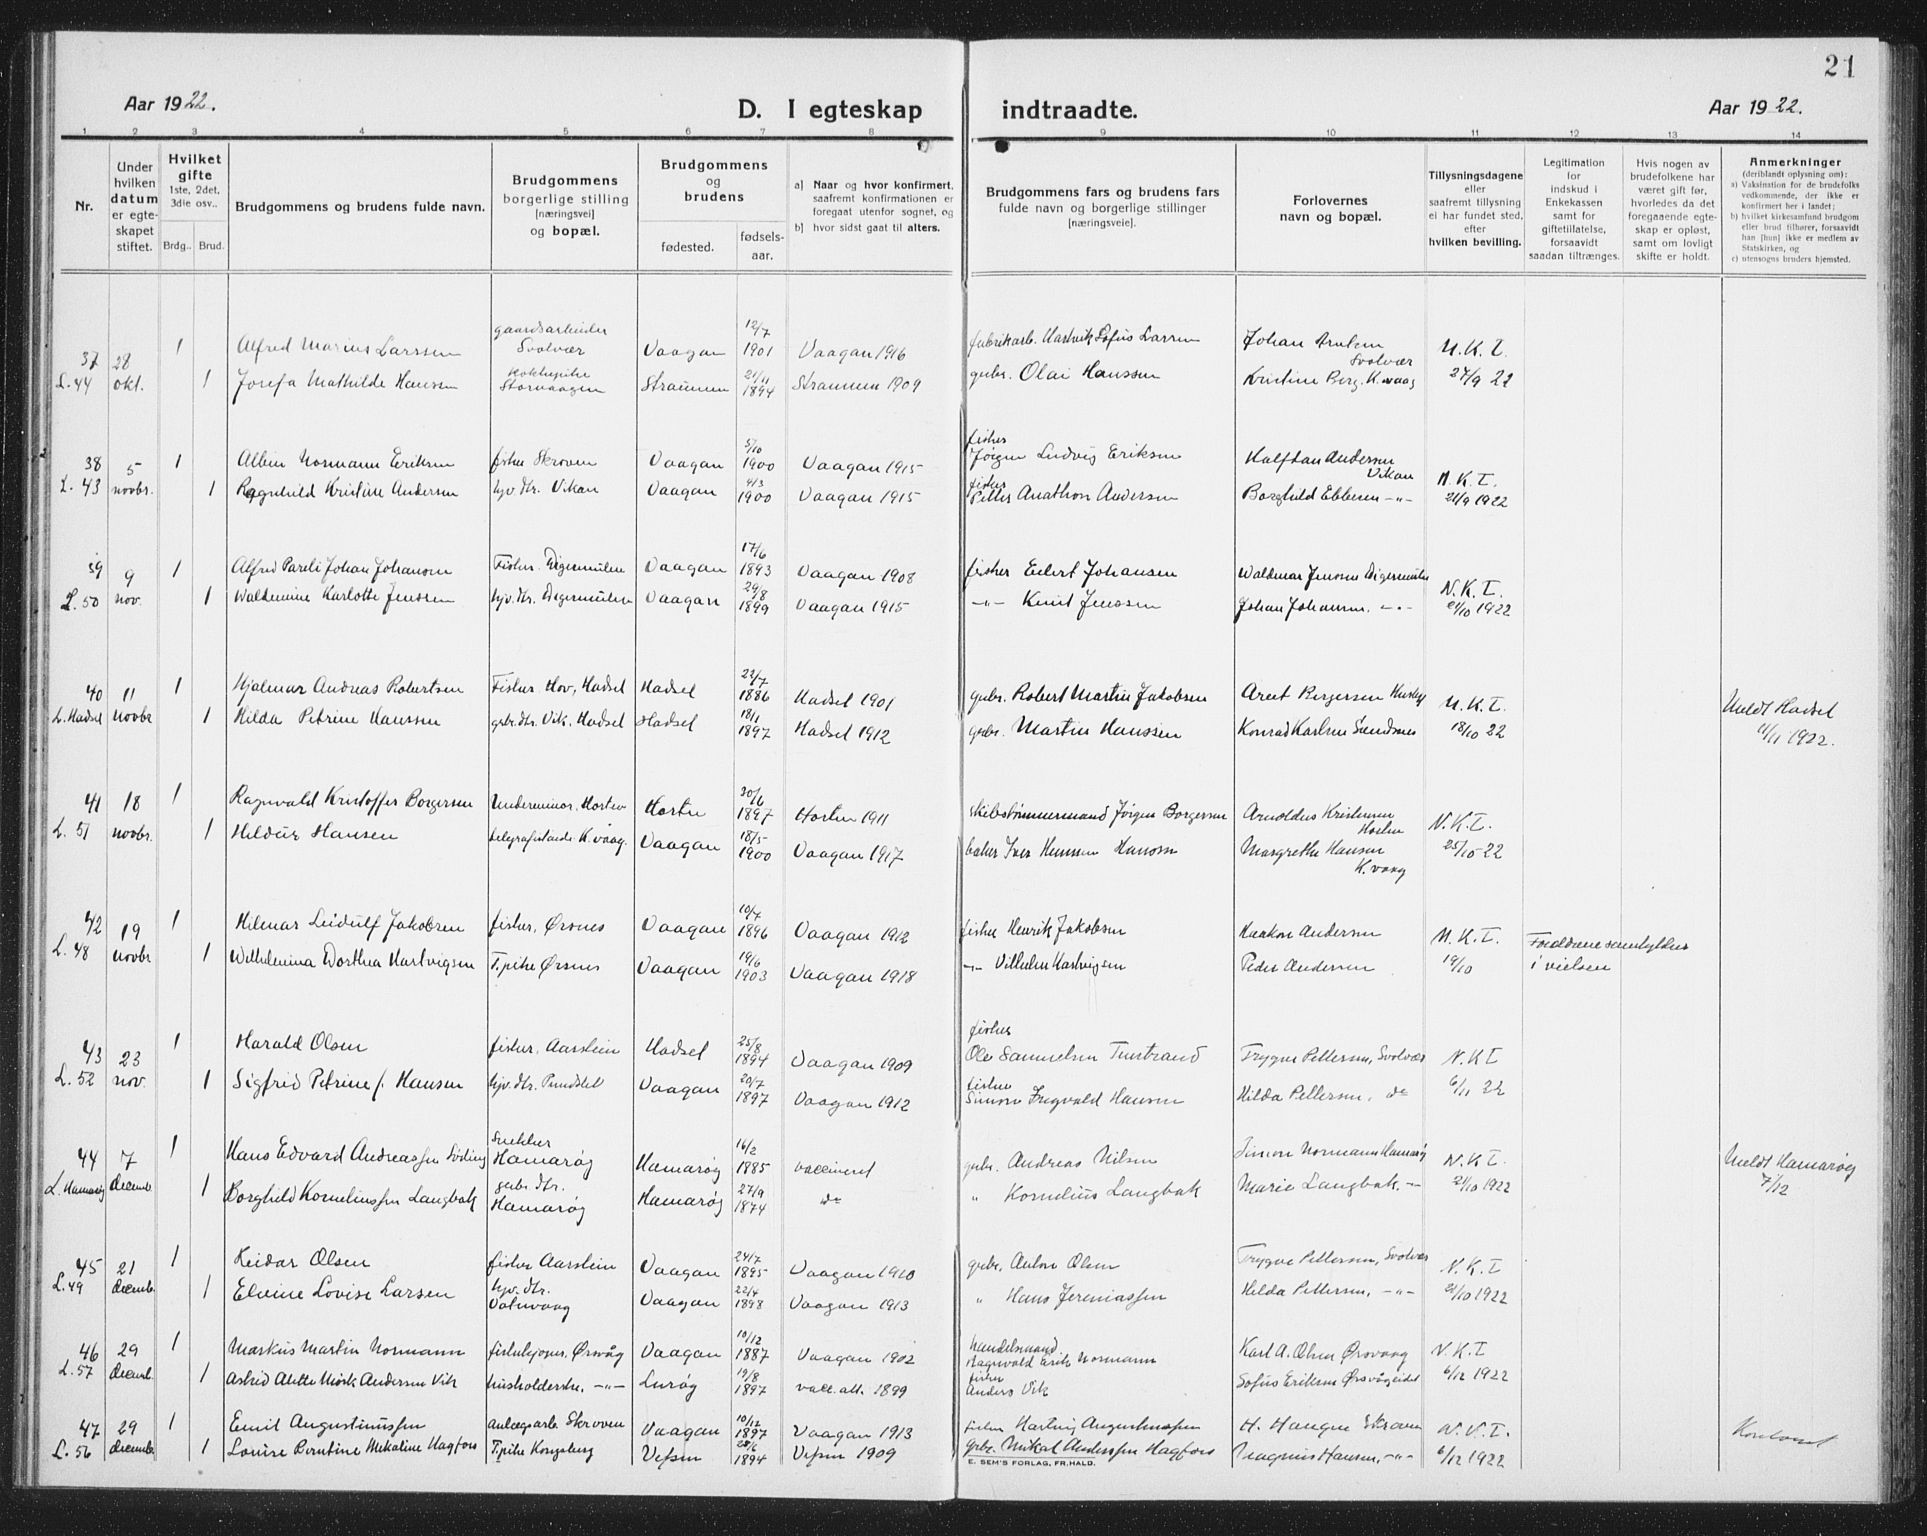 21
Aar 1922.
D. I egteskap
indtraadte.
Aar 1922.
1 2 3 4 5 6 7 8 9 10 11 12 13 14
Nr.
Under hvilken datum er egteskapet stiftet.
Hvilket gifte 1ste, 2det, 3die osv..
Brdg.. Brud.
Brudgommens og brudens fulde navn.
Brudgommens borgerlige stilling [næringsvei] og bopæl.
Brudgommens og brudens
fødested.
fødsels-aar.
a) Naar og hvor konfirmert, saafremt konfirmationen er foregaat utenfor sognet, og
b) hvor sidst gaat til alters.
Brudgommens fars og brudens fars fulde navn og borgerlige stillinger [næringsveie].
Forlovernes navn og bopæl.
Tillysningsdagene eller saafremt tillysning ei har fundet sted, efter hvilken bevilling.
Legitimation for indskud i Enkekassen samt for giftetillatelse, forsaavidt saadan tiltrænges.
Hvis nogen av brudefolkene har været gift før, hvorledes da det foregaaende egteskap er opløst, samt om lovligt skifte er holdt.
Anmerkninger (deriblandt oplysning om):
a) Vaksination for de brudefolks vedkommende, der ikke er konfirmert her i landet;
b) hvilket kirkesamfund brudgom eller brud tilhører, forsaavidt han [hun] ikke er medlem av Statskirken, og
c) utensogns bruders hjemsted.
37 28 1 Alfred Marius Larssen gaardsarbeider Svolvær Vaagan 12/7 1901 Vaagan 1916 fabrikarb. Hartvik Sofus Larsen Johan Svolvær N.K.T.
L. 44 okt. 1 Josefa Mathilde Hansen Storvaagen Straumen 21/11 1894 Straumen 1909 gbr. Olai Hanssen Kristine Berg. K.vaag 27/9 22
38 5 1 Albin Normann Eriksen fisker Skroven Vaagan 5/10 1900 Vaagan 1915 fisker Jørgen Ludvig Eriksen Halfdan Andersen Vikan N.K.T.
L. 43 novbr. 1 Ragnhild Kristine Andersen hjv. dtr. Vikan Vaagan 4/3 1900 Vaagan 1915 fisker Petter Anathon Andersen Borghild Ebbesen -"- 21/9 1922
39 9 1 Alfred Pareli Johan Johansen Fisker. Digermulen Vaagan 17/6 1893 Vaagan 1908 fisker Eilert Johansen Waldemar Jenssen Digermulen N.K.T.
L. 50 nov. 1 Waldemine Karlotte Jenssen hjv. dtr. Digermulen Vaagan 29/8 1899 Vaagan 1915 -"- Knut Jenssen Johan Johansen. -"- 21/10 1922
40 11 1 Hjalmar Andreas Robertsen Fisker Hov, Hadsel Hadsel 22/7 1886 Hadsel 1901 grbr. Robert Martin Jakobsen Areet Bergersen N.K.T. Meldt Hadsel
L. Hadsel novbr 1 Hilda Petrine Hanssen grbr. dtr. Vik, Hadsel Hadsel 18/1 1897 Hadsel 1912 grbr. Martin Hanssen Konrad Karlsen Sundsnes 18/10 22 11/11 1922.
41 18 1 Ragnvald Kristoffer Borgersen Underminør. Horten Horten 30/6 1897 Horten 1911 skibstømmermand Jørgen Borgersen Arnoldus Kristensen N.K.T.
L. 51 novbr. 1 Hildur Hansen telegrafistinde K.vaag. Vaagan 18/5 1900 Vaagan 1917 baker Iver Hemmen Hansen Margrethe Hansen K.vaag 25/10-22
42 19 1 Hilmar Leidulf Jakobsen fisker, Ørsnes Vaagan 10/7 1896 Vaagan 1912 fisker Henrik Jakobsen Haakon Andersen N.K.T. Forældrene samtykker
L. 48 novbr 1 Wilhelmina Dorthea Hartvigsen Tj.pike Ørsnes Vaagan 19/6 1903 Vaagan 1918 -"- Vilhelm Hartvigsen Peder Andersen 19/10 i vielsen
43 23 1 Harald Olsen fisker, Aarstein Hadsel 25/8 1894 Vaagan 1909 fisker Ole Samuelsen Tunstrand Trygve Pettersen, Svolvær N.K.T
L. 52 nov. 1 Sigfrid Petrine f. Hansen hjv. dtr. Pundslet Vaagan 20/7 1897 Vaagan 1912 fisker Simon Ingvald Hansen Hilda Pettersen, do 6/11 22
44 7 1 Hans Edvard Andreassen Snekker Hamarøy Hamarøy 16/2 1885 vaccineret grbr. Andreas Nilsen Simon Normann Hamarøy N.K.T. Meldt Hamarøy
L. Hamarøy decemb. 1 Borghild Korneliussen Langbak grbr. dtr. Hamarøy Hamarøy 27/9 1874 do " Kornelius Langbak Marie Langbak. -"- 21/10 1922 7/12
45 21 1 Reidar Olsen fisker Aarstein Vaagan 24/7 1895 Vaagan 1910 grbr. Anton Olsen Trygve Pettersen, Svolvær N.K.T
L. 49 decemb. 1 Elvine Lovise Larsen hjv. dtr. Vaagan 22/4 1898 Vaagan 1913 " Hans Jeremiassen Hilda Pettersen, -"- 21/10 1922
46 29 1 Markus Martin Normann Ørsvåg Vaagan 10/12 1887 Vaagan 1902 Handelsmand. Ragnvald Erik Normann Karl A. Olsen Ørsvaag N.K.T
L. 57 decemb. 1 Astrid Alette Mørk Andersen Vik husholderske, -"- Lurøy 19/8 1897 vacc. att. 1899 fisker Anders Vik Sofus Eriksen Ørsvågeidet 6/12 1922
47 29 1 Emil Augustinussen anlægsarb. Skroven Vaagan 10/12 1897 Vaagan 1913 fisker Hartvig Augustinussen H. Haugen Skroven N.K.T.
L. 56 decemb. 1 Louise Berntine Mekaline Hagfors Tj.pike Kongsberg Vefsen 28/6 1894 Vefsen 1909 grbr. Mikal Anderssen Hagfors Magnus Hansen, -"- 6/12 1922
E. SEM'S FORLAG, FR.HALD.